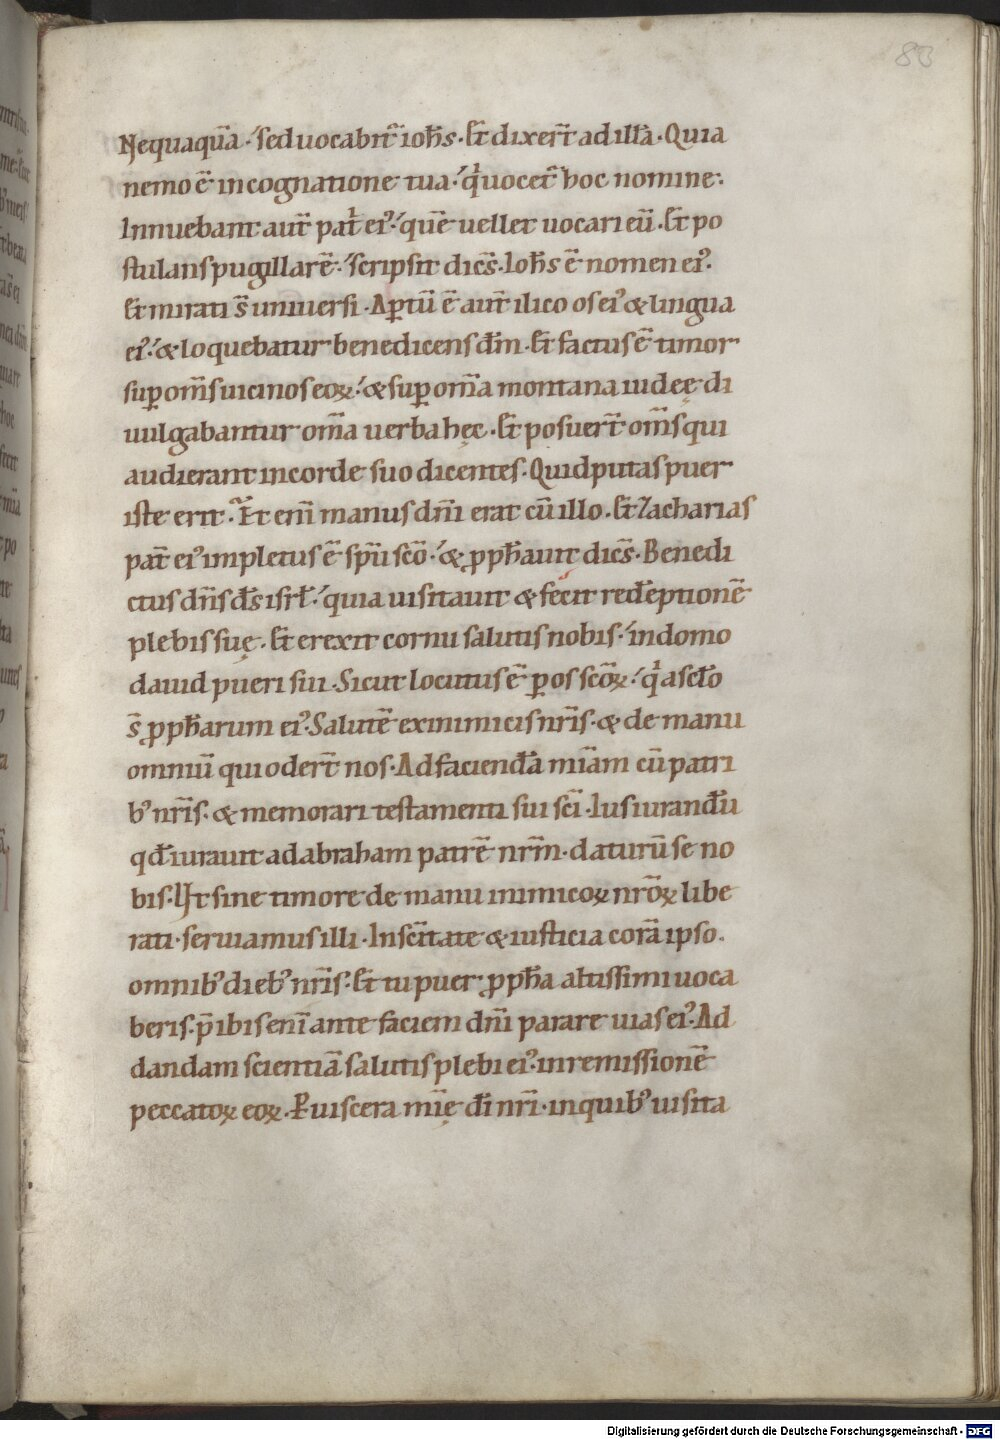 83
Nequaquā · sed uocabit᷑ ioh̄s · Et dixer̄t ad illā · Quia
nemo ē in cognatione tua · q̍ uocet᷑ hoc nomine ·
Innuebant aut̄ patͥ ei᾽ · quē uellet uocari eū · Et po
stulans pugillarē · scripsit dicēs · Ioh̄s ē nomen ei᾽ ·
Et mirati s̄ uniuersi · Aꝑtū ē aut̄ ilico os ei᾽ & lingua
ei᾽ · & loquebatur benedicens dm̄ · Et factus ē timor
suꝑ om̄s uicinos eoꝝ · & suꝑ om̄a montana iudeę di
uulgabantur om̄a uerba hęc · Et posuer̄t om̄s qui
audierant in corde suo dicentes · Quid putas puer
iste erit · Et eni᷑ manus dn̄i erat cū illo · Et Zacharias
pat̄ ei᾽ impletus ē spū scō · & ꝓph̄auit dicēs · Benedi
ctus dn̄s ds̄ isrł · quia uisitauit & fecit redēptionē
plebis suę · Et erexit cornu salutis nobis · in domo
dauid pueri sui · Sicut locutus ē ꝑ os scōꝝ · q̍ a sc̄lo
s̄ ꝓph̄arum ei᾽ · Salutē ex inimicis nr̄is · & de manu
omniū qui oder̄t nos · Ad faciendā miām cū patri
b᾽ nr̄is · & memorari testamenti sui sc̄i · Iusiurandū
qđ iurauit ad abraham patrē nr̄m · daturū se no
bis · Ut sine timore de manu inimicoꝝ nr̄oꝝ libe
rati · seruiamus illi · In sc̄itate & iusticia corā ipso ·
omnib᾽ dieb᾽ nr̄is · Et tu puer ꝓph̄a altissimi uoca
beris · p̄ibis eni᷑ ante faciem dn̄i parare uias ei᾽ · Ad
dandam scientiā salutis plebi ei᾽ · in remissionē
peccatoꝝ eoꝝ · Ꝑ uiscera mīę dī nr̄i · in quib᾽ uisita
Digitalisierung gefördert durch die Deutsche Forschungsgemeinschaft - DFG